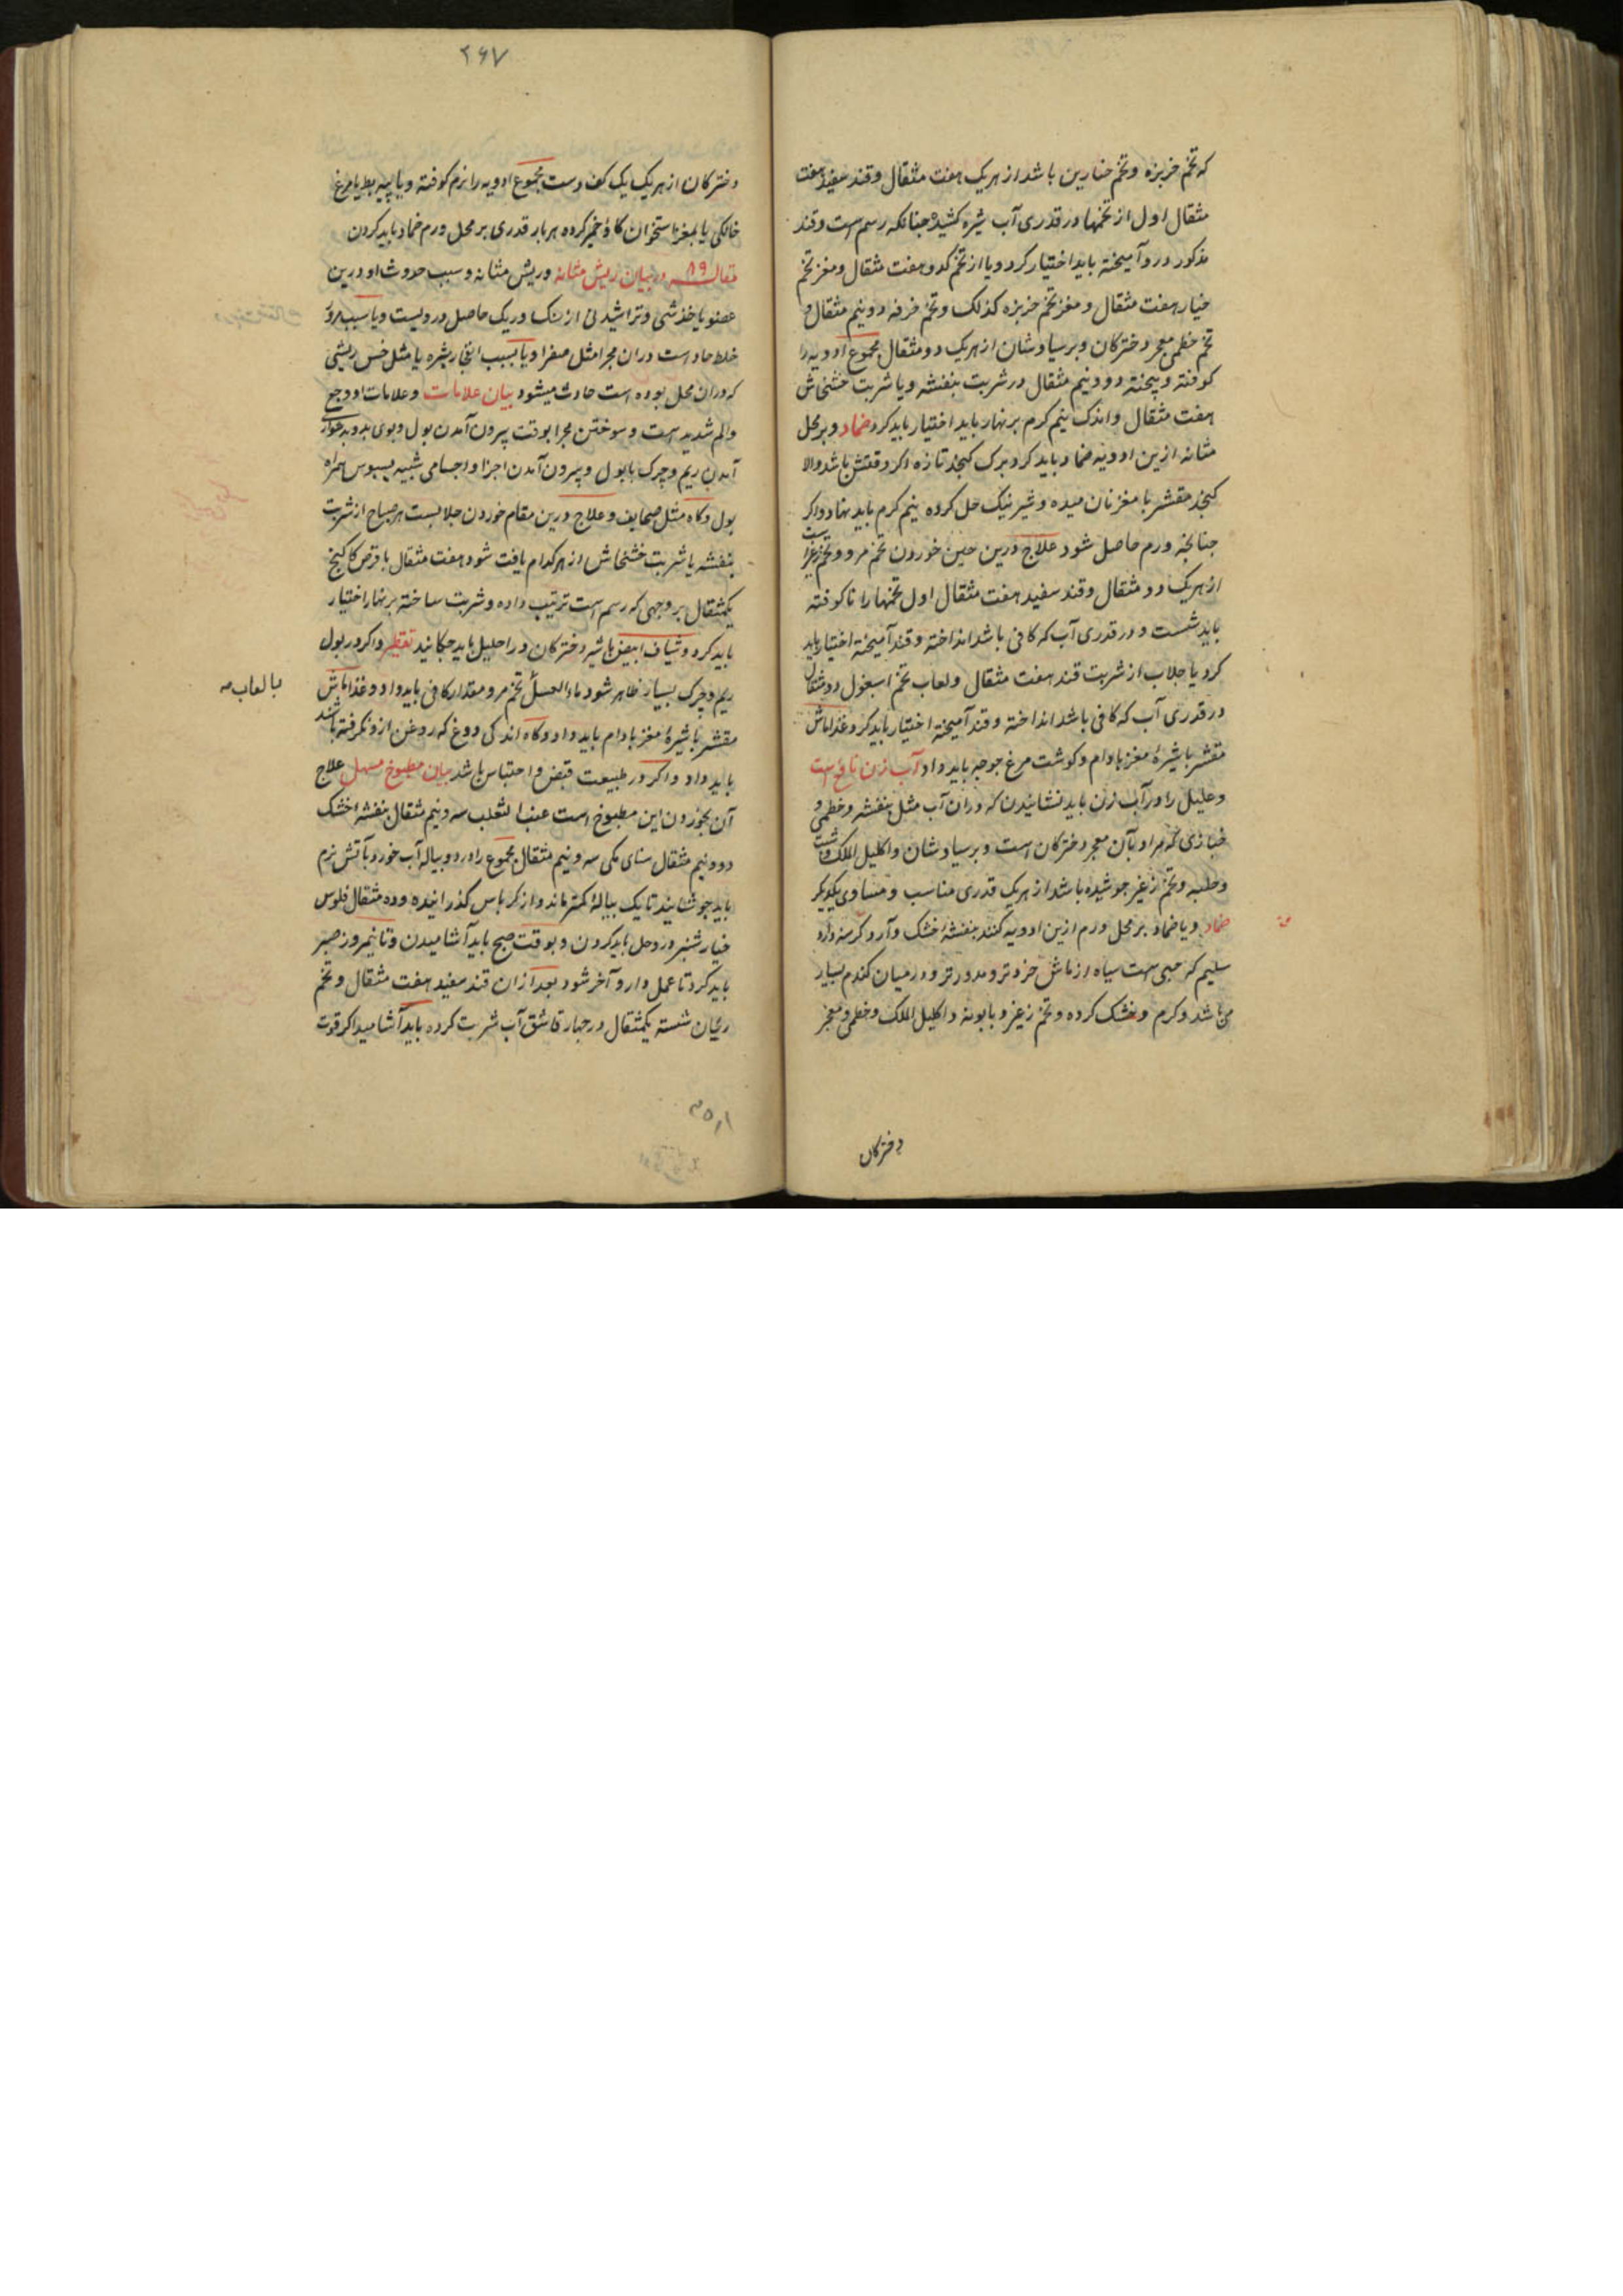 که تخم خربزه و تخم خیارین باشد از هر یک هفت مثقال و قند سفید هفت
مثقال اول از تخمها در قدری آب شیره کشیده جنانکه رسم است و قند
مذکور درو آمیخته باید اختیار کرد و یا از تخم کدو هفت مثقال و مغز تخم
خیار هفت مثقال و مغز تخم خربزه کذلک و تخم خرفه دو نیم مثقال و
تخم خطمی معجر دخترکان و برسیاوشان از هر یک دو مثقال مجموع ادویه را
کوفته و بیخته دو و نیم مثقال در شربت بنفشه و یا شربت خشخاش
هفت مثقال و اندک نیم کرم بر نهار باید اختیار باید کرد ضماد و بر محل
مثانه ازین ادویه ضماد باید کرد برک کنجد تازه اکر وقتش باشد والا
کنجد مقشر با مغز نان میده و شیر نیک حل کرده نیم کرم باید نهاد و اکر
جنانجه ورم حاصل شود علاج درین حین خوردن تخم مرو و تخم زغیر است
از هر یک دو مثقال و قند سفید هفت مثقال اول تخمها را ناکوفته
باید شست و در قدری آب که کافی باشد انداخته و قند آمیخته اختیار باید
کرد یا جلاب از شربت قند هفت مثقال و لعاب تخم اسبغول دو مثقال
در قدری آب که کافی باشد انداخته و قند آمیخته اختیار باید کرد و غذا ماش
مقشر با شیرهٔ مغز بادام و کوشت مرغ جوجه باید داد آب زن نافع است
و علیل را در آب زن باید نشانیدن که در آن آب مثل بنفشه و خطمی و
خبازی که مراد بآن معجر دخترکان است و برسیاوشان و اکلیل الملک و شبت
و حلبه و تخم زغیر جوشیده باشد از هر یک قدری مناسب و مساوی یکدیکر
ضماد و یا ضماد بر محل ورم ازین ادویه کنند بنفشهٔ خشک و آرد کرسنه و آرد
سلیم که حبی است سیاه از ماش خردتر و مدورتر و در میان کندم بسیار
می باشد و کرم و خشک کرده و تخم زغیر و بابونه و اکلیل الملک و خطمی و معجر
دخترکان
۲۶۷
دخترکان از هر یک یک کف دست مجموع ادویه را نرم کوفته و با پیه بط یا مرغ
خانکی یا بمغز استخوان کاو خمیر کرده هر بار قدری بر محل ورم ضماد باید کردن
مقاله ۸۹ در بیان ریش مثانه و ریش مثانه و سبب حدوث او درین
عضو یا خدشی و تراشیدنی از سنک و ریک حاصل درو لیست و یا سبب مرور
خلط حاد است در آن مجرا مثل صفرا و یا بسبب انفجار بثره یا مثل خس ریشی
که در آن محل بوده است حادث میشود بیان علامات و علامات او وجع
و الم شدید است و سوختن مجرا بوقت بیرون آمدن بول و بوی بد و بدشواری
آمدن ریم و چرک با بول و بیرون آمدن اجزا و اجسامی شبیه بسبوس همراه
بول و کاه مثل صحایف و علاج درین مقام خوردن جلابست هر صباح از شربت
بنفشه یا شربت خشخاش از هر کدام یافت شود هفت مثقال با قرص کاکنج
یکمثقال بر وجهی که رسم است ترتیب داده و شربت ساخته بر نهار اختیار
باید کرد و شیاف ابیض با شیر دخترکان در احلیل باید جکانید تقطیر و اکر در بول
ریم و چرک بسیار ظاهر شود ماء العسل تخم مرو مقدار کافی باید داد و غذا ماش
بالعاب صه
مقشر با شیرهٔ مغز بادام باید داد و کاه اندکی دوغ که روغن ازو نکرفته باشند
باید داد و اکر در طبیعت قبض و احتباس باشد بیان مطبوخ مسهل علاج
آن بخوردن این مطبوخ است عنب الثعلب سه و نیم مثقال بنفشهٔ خشک
دو و نیم مثقال سنای مکی سه و نیم مثقال مجموع را در دو پیاله آب خورد بآتش نرم
باید جوشانید تا یک پیالهٔ کمتر ماند و از کرباس کذرانیده و ده مثقال فلوس
خیار شنبر درو حل باید کردن و بوقت صبح باید آشامیدن و تا نیمروز صبر
باید کرد تا عمل دارو آخر شود بعد ازان قند سفید هفت مثقال و تخم
ریحان شسته یکمثقال در جهار قاشق آب شربت کرده باید آشامید اکر قوت